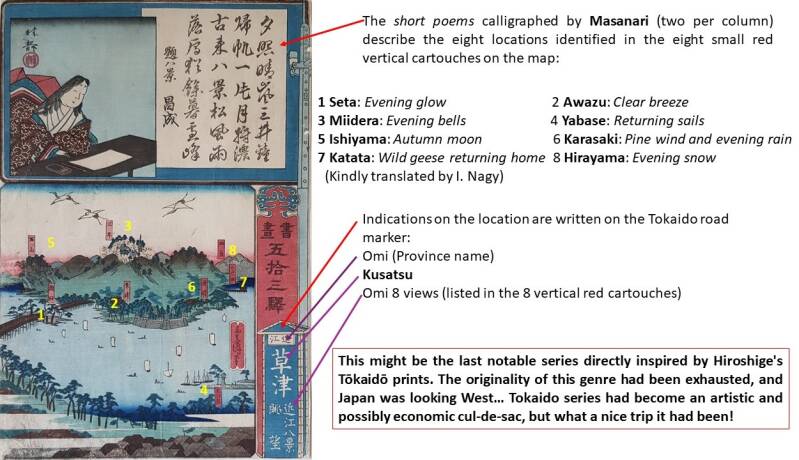 夕照晴嵐三井鐘
歸帆一片月將濃
古来八景松風雨
落雁猶餘暮雪峰
題八景 昌成
The short poems calligraphed by Masanari (two per column)
describe the eight locations identified in the eight small red
vertical cartouches on the map:
1 Seta: Evening glow 2 Awazu: Clear breeze
3 Miidera: Evening bells 4 Yabase: Returning sails
5 Ishiyama: Autumn moon 6 Karasaki: Pine wind and evening rain
7 Katata: Wild geese returning home 8 Hirayama: Evening snow
(Kindly translated by I. Nagy)
書畫
五拾三驛
近江
草津
近江八景
眺望
3
5
8
7
6
2
1
4
Indications on the location are written on the Tokaido road
marker:
Omi (Province name)
Kusatsu
Omi 8 views (listed in the 8 vertical red cartouches)
This might be the last notable series directly inspired by Hiroshige's
Tōkaidō prints. The originality of this genre had been exhausted, and
Japan was looking West... Tokaido series had become an artistic and
possibly economic cul-de-sac, but what a nice trip it had been!